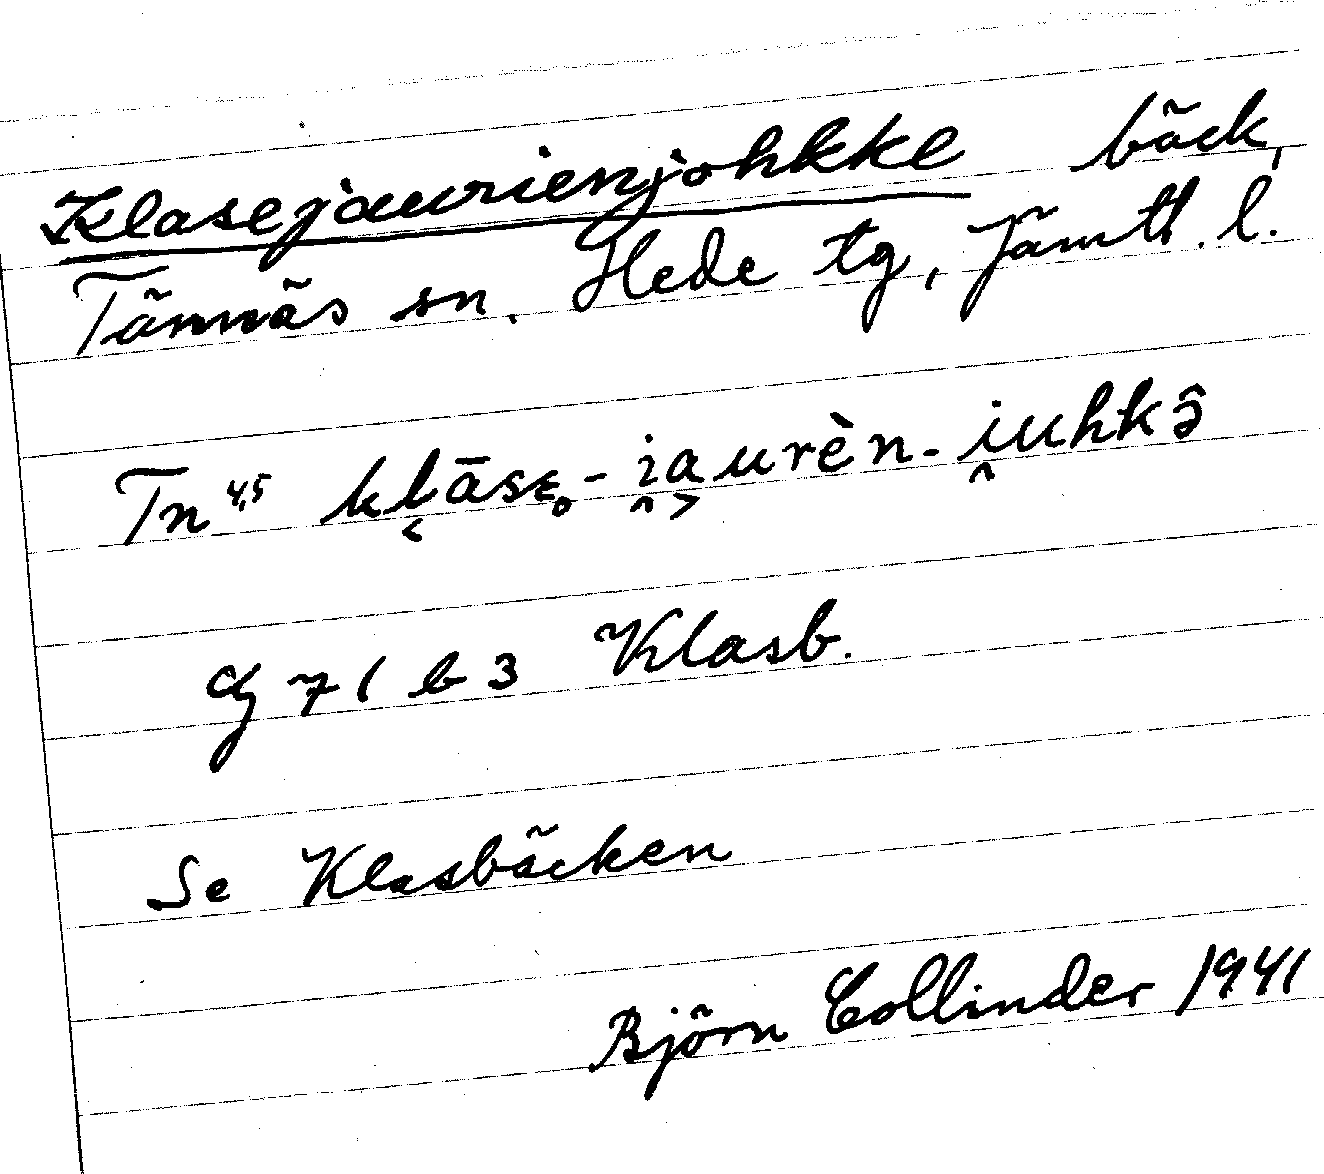 Klasejaurienjohkke bäck,
Tännäs sn. Hede tg, Jämtl. l.
Tn 4,5 kl̬āsɛ̥-i̯a̬urèn-i̯uhkə̂
G 71 b 3 Klasb.
Se Klasbäcken
Björn Collinder 1941